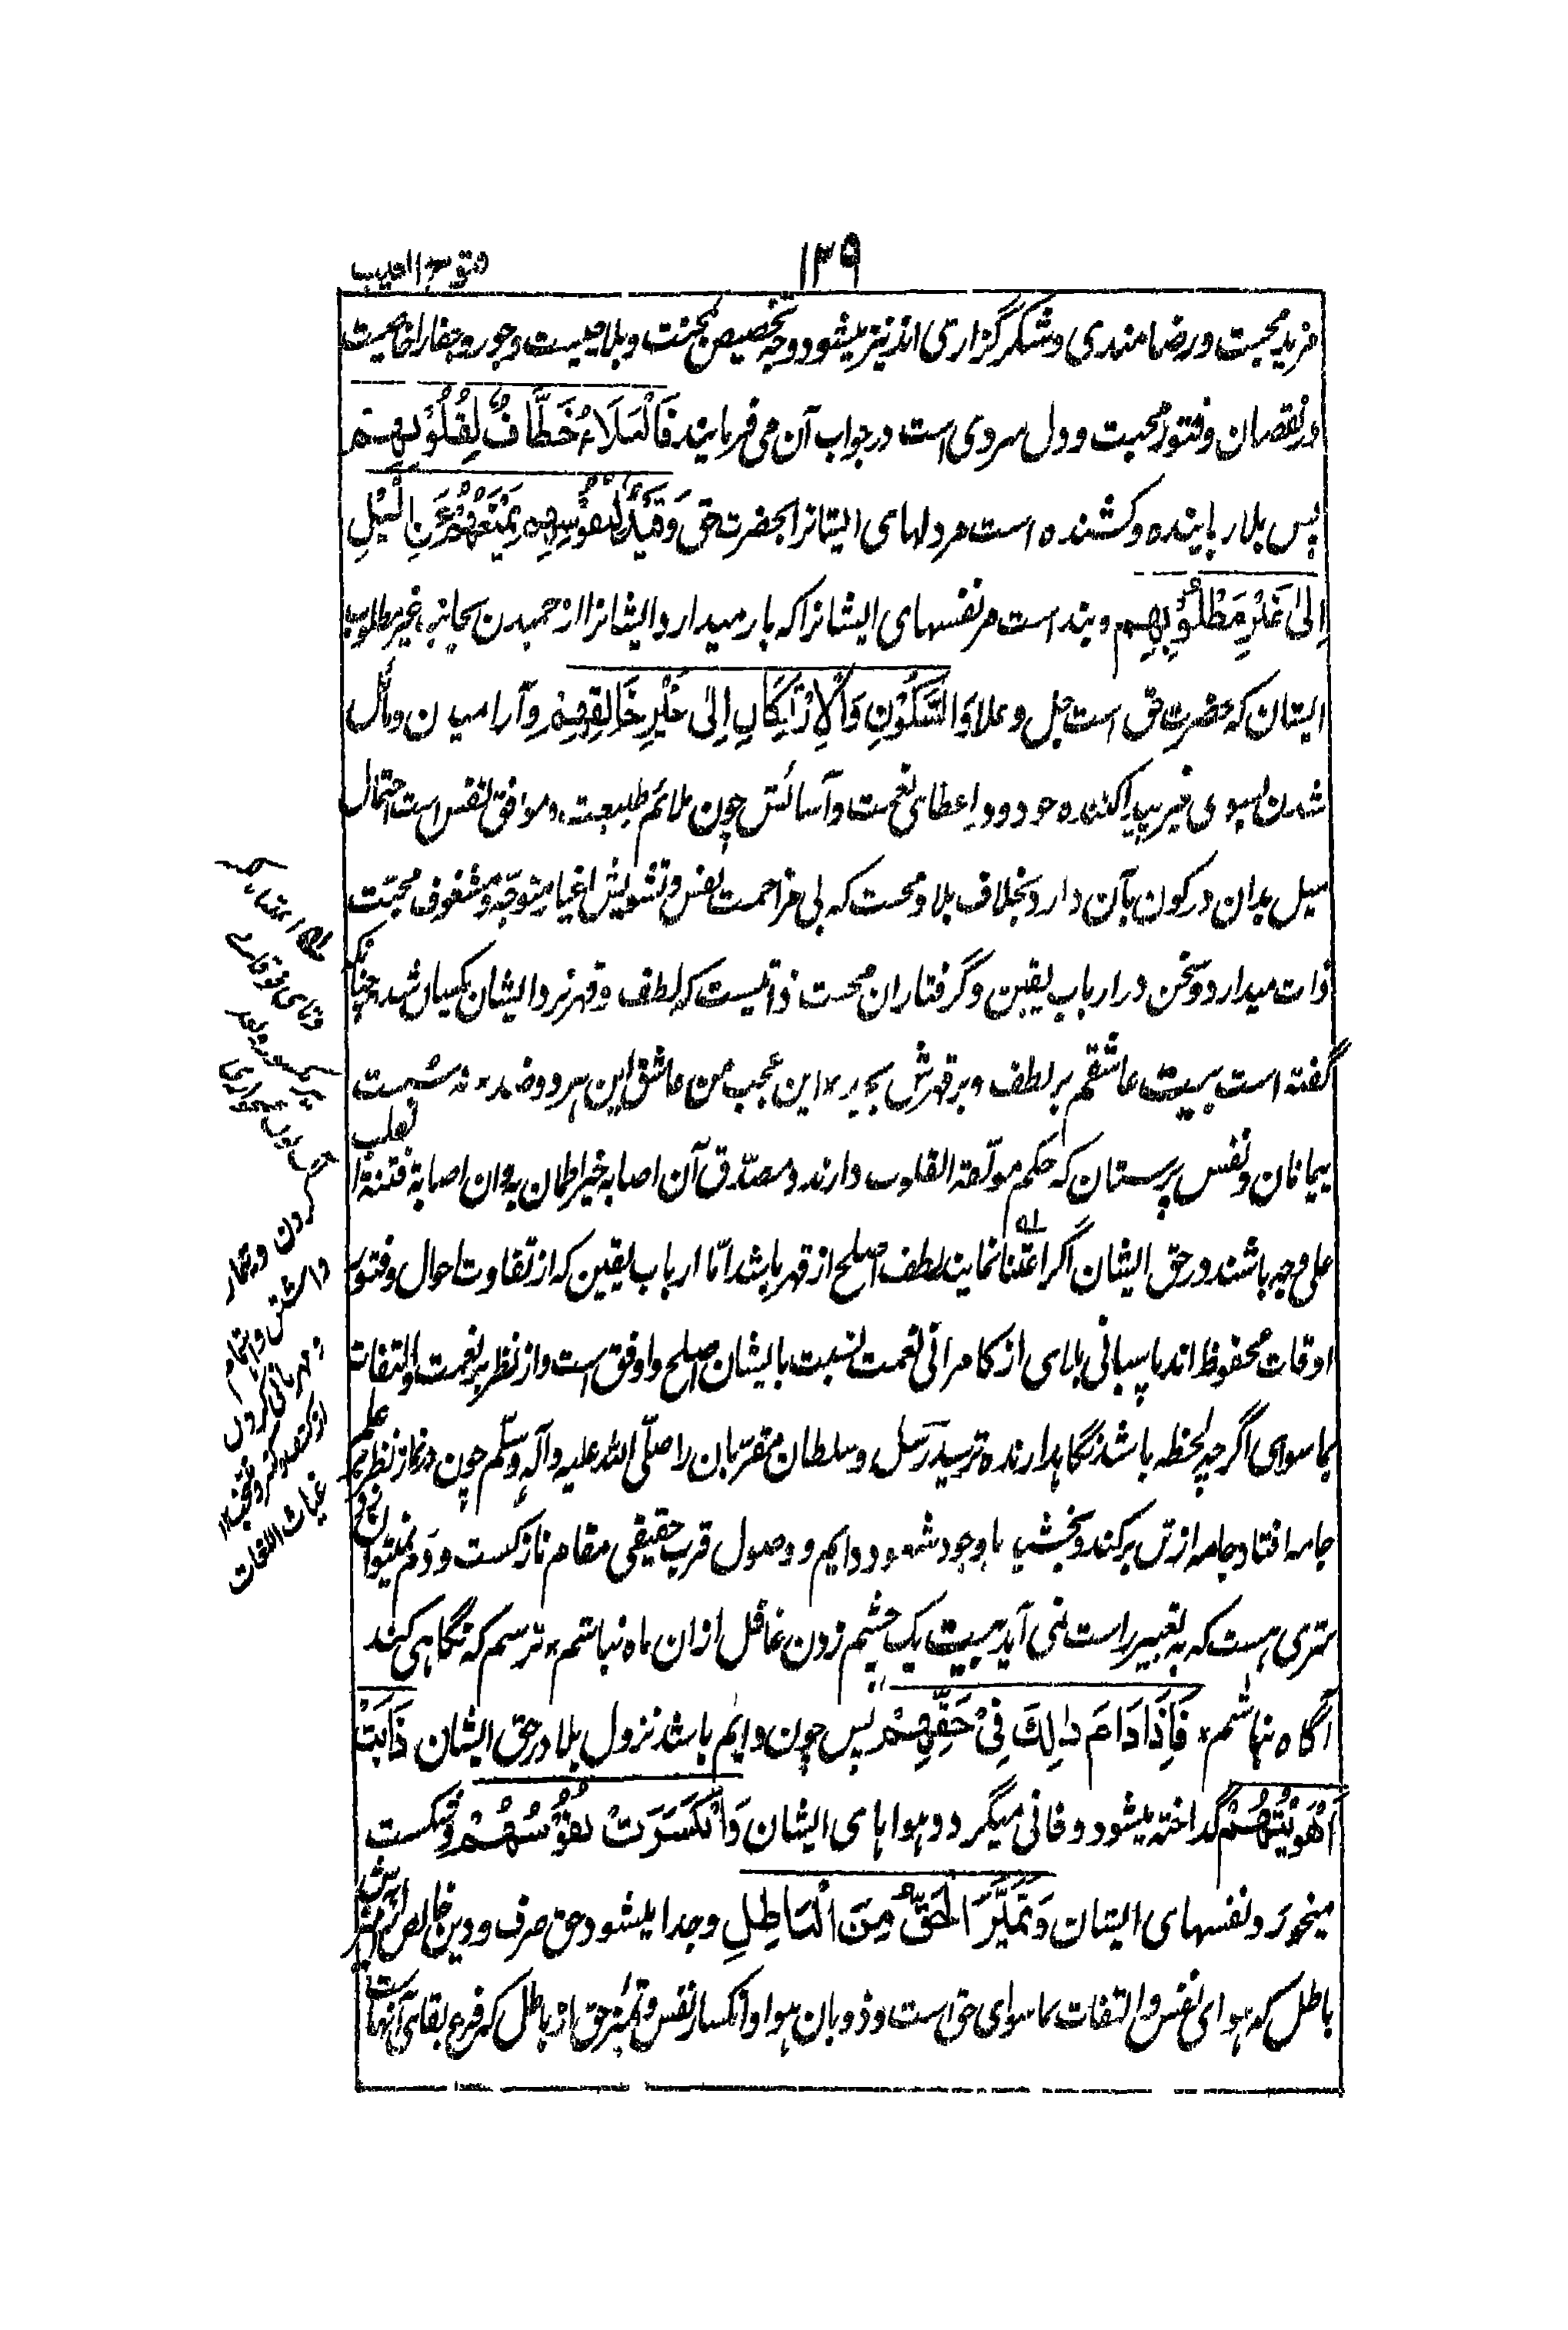 ۱۳۹
فتوح الغیب
مزید محبت و رضامندی و شکرگزاری اند نیز میشود و وجه تخصیص محنت و بلا چیست و جور و جفا را خاصیت
در نقصان و فتور محبت و دل سردی است در جواب آن می فرمایند فَالْبَلَاءُ خَطَّافٌ لِقُلُوْبِهِمْ
پس بلا رباینده و کشنده است مر دلهای ایشانرا بحضرت حق وَقَيْدٌ لِنُفُوْسِهِمْ يَمْنَعُهُمْ عَنِ الْمَيْلِ
اِلٰى غَيْرِ مَطْلُوْبِهِمْ و بند است مر نفسهای ایشانرا که باز میدارد ایشانرا از خمیدن بجانب غیر مطلوب
ایشان که حضرت حق است جل و علا وَالسُّكُوْنِ وَالْاِرْتِكَانِ اِلٰى غَيْرِ خَالِقِهِمْ و آرامیدن و مائل
شدن بسوی غیر پیدا کننده خود و اعطای نعمت و آسائش چون ملائم طبیعت و موافق نفس است احتمال
میل بدان و رکون بآن دارد بخلاف بلا و محنت که بی مزاحمت نفس و تشویش اغیار متوجه و مشغوف محبت
ذات میدارد و سخن در ارباب یقین و گرفتاران محبت ذاتیست که لطف و قهر نزد ایشان یکسان شد چنانکه
گفته است بیت عاشقم بر لطف و بر قهرش بجد * این عجب من عاشق این هر دو ضد * نه سست
ایمانان و نفس پرستان که حکم مولفة القلوب دارند و مصدق آن اصابه خیر اطمان به وان اصابة فتنة انقلب
علی وجهه باشند در حق ایشان اگر اعتنا نمایند لطف اصلح از قهر باشد اما ارباب یقین که از تفاوت احوال و فتور
اوقات محفوظ اند پاسبانی بلای از کامرانی نعمت نسبت بایشان اصلح و اوفق است و از نظر بر نعمت و التفات
بماسوای اگرچه لحظه باشد نگاهدارنده تر سید رسل و سلطان مقربان را صلی الله علیه و آله وسلم چون در نماز نظر بر علم
جامه افتاد جامه از تن برکند و بخشید با وجود شهود دایم و وصول قرب حقیقی مقام نازکست و دم نمیتوان زد
سری هست که به تعبیر راست نمی آید بیت یک چشم زدن غافل ازان ماه نباشم * ترسم که نگاهی کند
آگاه نباشم * فَاِذَا دَامَ ذٰلِكَ فِىْ حَقِّهِمْ پس چون دایم باشد نزول بلا در حق ایشان ذَابَتْ
اَهْوِيَتُهُمْ گداخته میشود و فانی میگردد هواهای ایشان وَانْكَسَرَتْ نُفُوْسُهُمْ و شکست
میخورد نفسهای ایشان وَتَمَيَّزَ الْحَقُّ مِنَ الْبَاطِلِ و جدا میشود حق صرف و دین خالص از
باطل که هوای نفس و التفات بماسوای حق است و ذوبان هوا و انکسار نفس و تمیز حق از باطل که فرع بقای آنهاست
کردن و تیمار
داشتن و اتمام
و مهربانی کردن
از کنز و منتخب ۱۲
غیاث اللغات